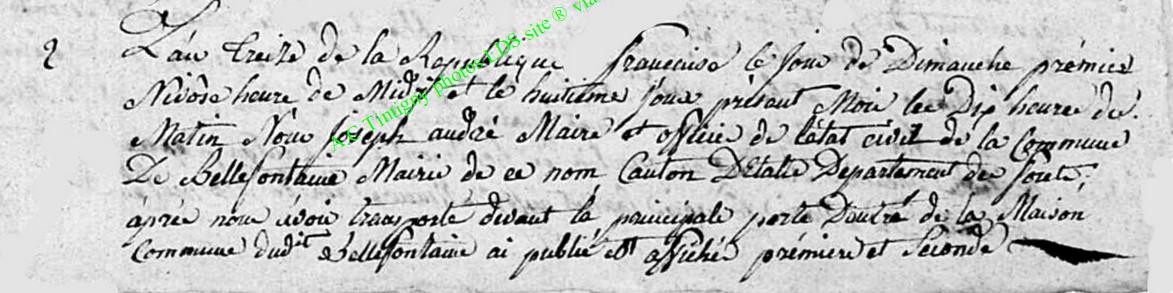 2 L'an treize de la Republique francaise le jour de Dimanche prémier
Nivôse heure de Midi et le huitième jour présant Mois les Dix heures de
Matin Nous Joseph andré Maire et officier de l'état civil de la Commune
De Bellefontaine Mairie de ce nom Canton D'Etalle Departement des forets
áprés nous avoir transporté devant la principale porte D'entré de la Maison
Commune dudit Bellefontaine ai publié et affiché prémiere et seconde
A.C Tintigny photos LDS site ® via